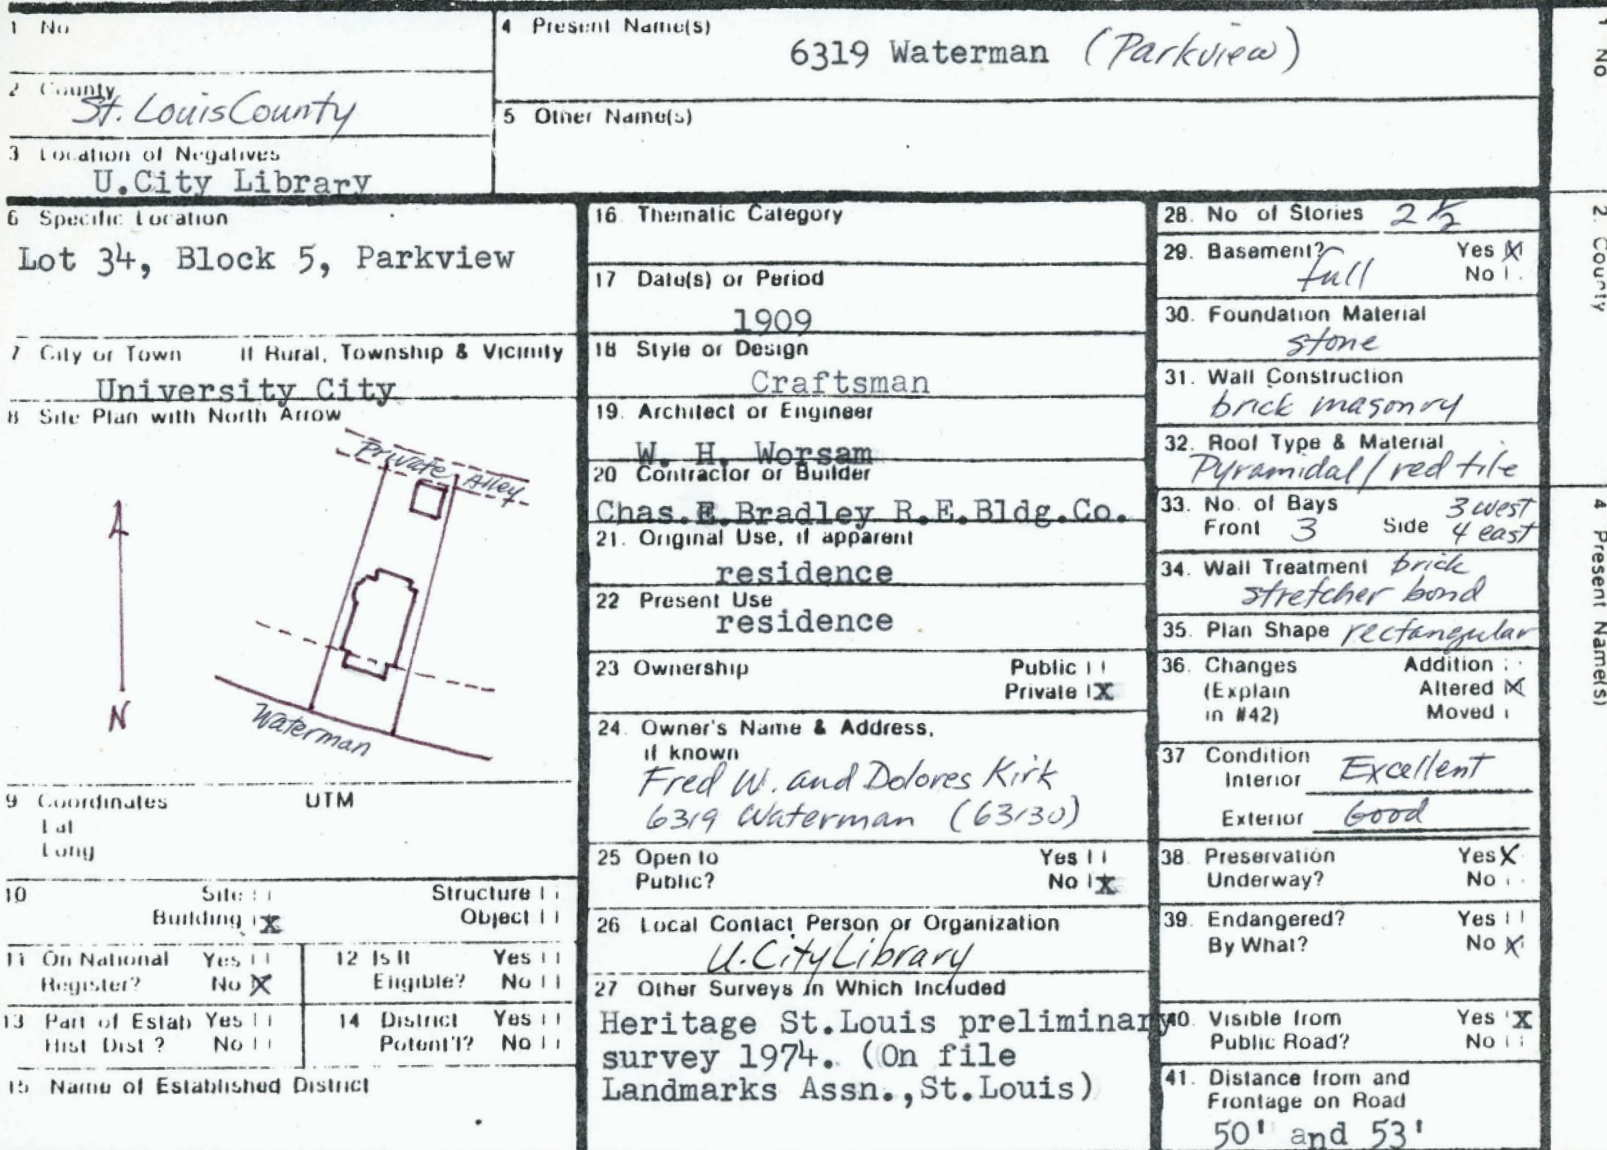 1 No
4 Present Name(s)
6319 Waterman (Parkview)
2 County
St. Louis County
5 Other Name(s)
3 Location of Negatives
U.City Library
6 Specific Location
Lot 34, Block 5, Parkview
7 City or Town If Rural, Township & Vicinity
University City
8 Site Plan with North Arrow
Private Alley
N
Waterman
9 Coordinates UTM
Lat
Long
10 Site Structure
Building X Object
11 On National Yes
Register? No X
12 Is It Yes
Eligible? No
13 Part of Estab Yes
Hist Dist? No
14 District Yes
Potent'l? No
15 Name of Established District
16. Thematic Category
17 Date(s) or Period
1909
18 Style or Design
Craftsman
19. Architect or Engineer
W. H. Worsam
20 Contractor or Builder
Chas.E.Bradley R.E.Bldg.Co.
21. Original Use, if apparent
residence
22 Present Use
residence
23 Ownership Public
Private X
24. Owner's Name & Address,
if known
Fred W. and Dolores Kirk
6319 Waterman (63130)
25 Open to Yes
Public? No X
26 Local Contact Person or Organization
U.City Library
27 Other Surveys in Which Included
Heritage St.Louis preliminary
survey 1974. (On file
Landmarks Assn.,St.Louis)
28. No of Stories 2 1/2
29. Basement? Yes X
full No
30. Foundation Material
stone
31. Wall Construction
brick masonry
32. Roof Type & Material
Pyramidal/red tile
33. No. of Bays 3 west
Front 3 Side 4 east
34. Wall Treatment brick
stretcher bond
35. Plan Shape rectangular
36. Changes Addition
(Explain Altered X
in #42) Moved
37 Condition
Interior Excellent
Exterior Good
38. Preservation Yes X
Underway? No
39. Endangered? Yes
By What? No X
40. Visible from Yes X
Public Road? No
41. Distance from and
Frontage on Road
50' and 53'
1 No
2. County
4 Present Name(s)